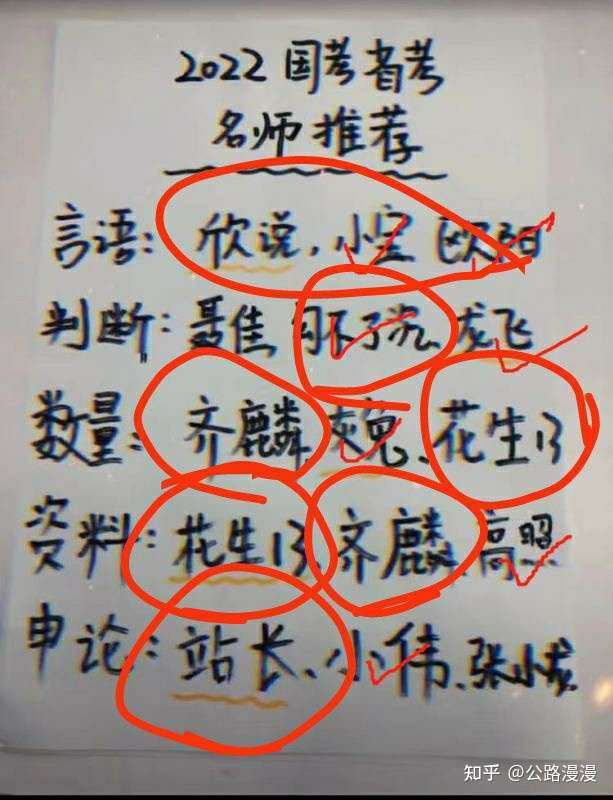 2022国考省考
名师推荐
言语: 欣说, 小宝 欧阳
判断: 聂佳 龙飞
数量: 齐麟 灰兔、花生13
资料: 花生13、齐麟、高照
申论: 站长、小伟、张小龙
知乎 @公路漫漫